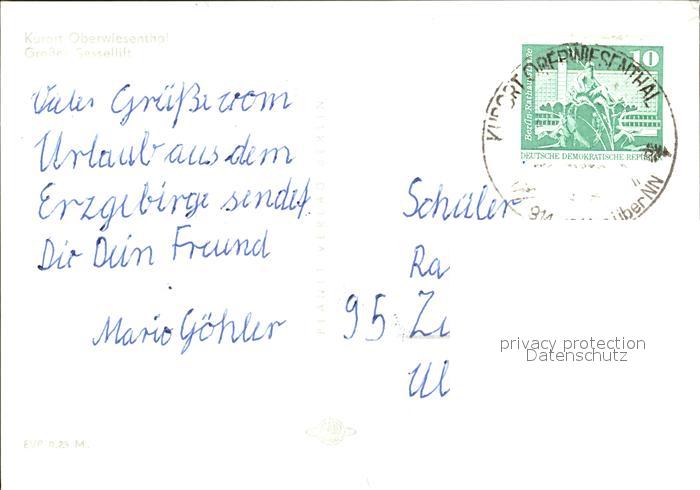 Kurort Oberwiesenthal
Großer Sessellift
Viele Grüße vom
Urlaub aus dem
Erzgebirge sendet
Dir Dein Freund
Mario Göhler
EVP 0,25 M
PLANET VERLAG BERLIN
10
Berlin-Rathausstraße
DEUTSCHE DEMOKRATISCHE REPUBLIK
KURORT OBERWIESENTHAL
914 über NN
Schüler
Ra
95 Zi
Ul
privacy protection
Datenschutz